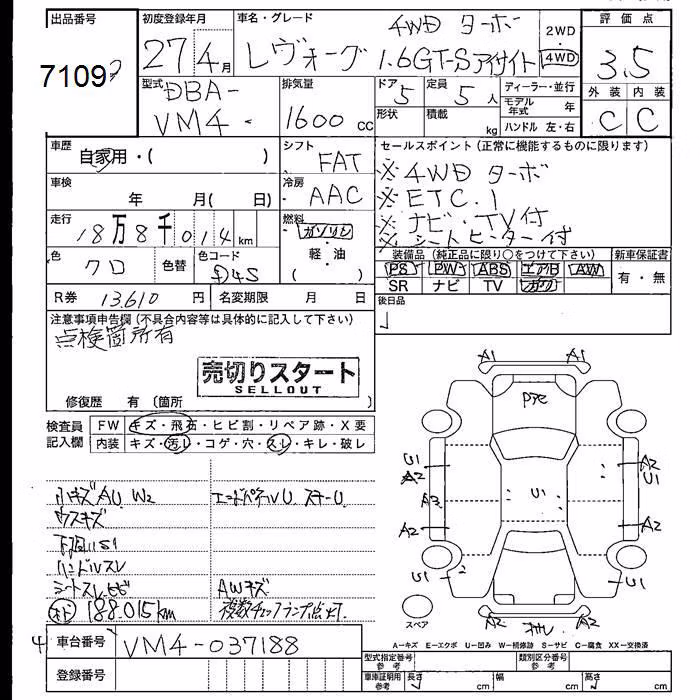 出品番号 初度登録年月 車名・グレード 評価点
7109
27年4月 レヴォーグ 4WD ターボ 1.6GT-Sアイサイト 2WD・4WD 3.5
型式 DBA-VM4 排気量 1600cc ドア形状 5 定員 5人 積載 kg
ディーラー・並行
モデル年式 年
ハンドル 左・右
外装 内装
C C
車歴 自家用・( ) シフト FAT
セールスポイント (正常に機能するものに限ります)
※4WD ターボ
※ETC.1
※ナビ・TV付
※シートヒーター付
車検 年 月( 日) 冷房 AAC
走行 18万8千014km 燃料 ガソリン・軽油
色 クロ 色替 色コード D4S
装備品 (純正品に限り○をつけて下さい) 新車保証書
PS PW ABS エアB AW 有・無
SR ナビ TV カワ
R券 13.610円 名変期限 月 日
後日品
注意事項申告欄 (不具合内容等は具体的に記入して下さい)
点検箇所有
売切りスタート
SELLOUT
修復歴 有 (箇所 )
検査員記入欄 FW キズ・飛石・ヒビ割・リペア跡・X要
内装 キズ・汚レ・コゲ・穴・スレ・キレ・破レ
A1 A1
U1 A2 A2
A3 U1
A2 A2
U1 2 U1
A2 A2
ハキズAU W2 エンドパネルU スキーU
ウスキズ
ハンドルスレ
シートスレ ヒビ AWキズ
188.015km 複数チェックランプ点灯
スペア
A-キズ E-エクボ U-凹み W-補修跡 S-サビ C-腐食 XX-交換済
車台番号 VM4-037188
登録番号
型式指定番号 参考 類別区分番号 参考
車庫証明用 参考 長さ cm 幅 cm 高さ cm